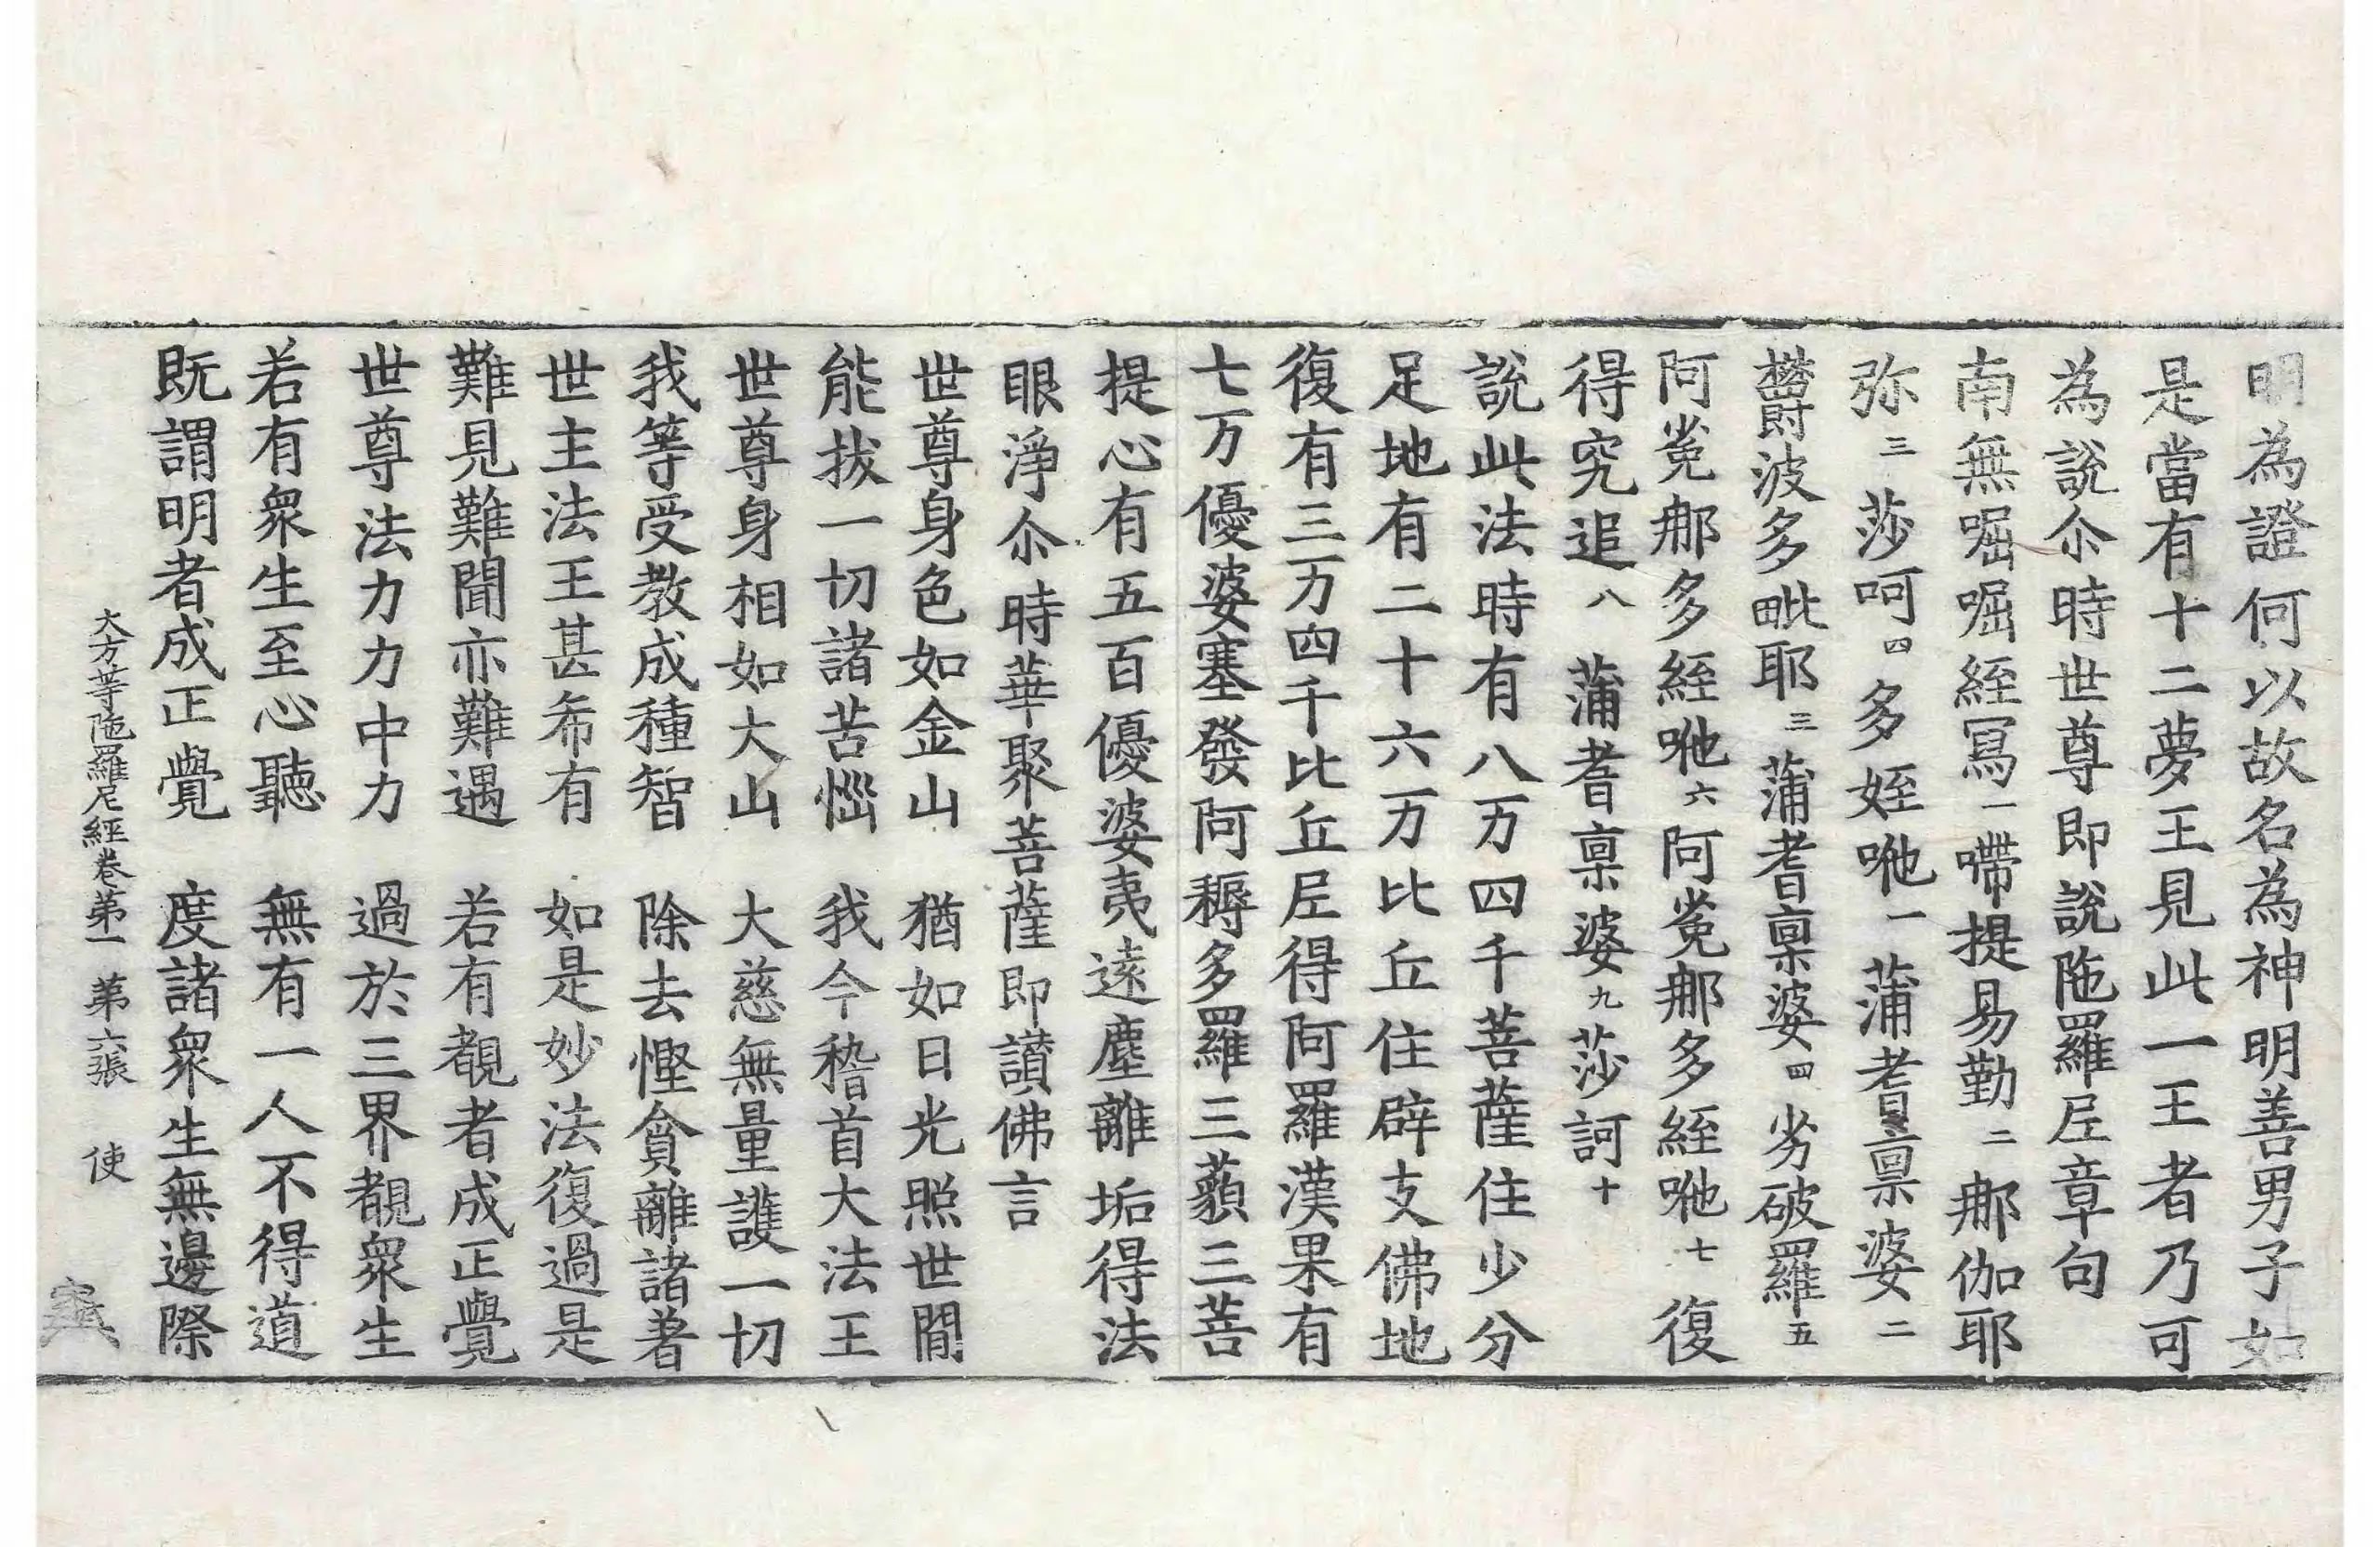 明為證何以故名為神明善男子如
是當有十二夢王見此一王者乃可
為說尒時世尊即說陁羅尼章句
南無㖶㖶絰寫一㗣提易勤二那伽耶
弥三莎呵四多姪咃一蒲耆禀婆二
欝波多毗耶三蒲耆禀婆四劣破羅五
阿㝹那多絰咃六阿㝹那多絰咃七復
得究追八蒲耆禀婆九莎訶十
說此法時有八万四千菩薩住少分
足地有二十六万比丘住辟支佛地
復有三万四千比丘尼得阿羅漢果有
七万優婆塞發阿耨多羅三藐三菩
提心有五百優婆夷遠塵離垢得法
眼淨尒時華聚菩薩即讃佛言
世尊身色如金山　猶如日光照世間
能拔一切諸苦惱　我今稽首大法王
世尊身相如大山　大慈無量護一切
我等受教成種智　除去慳貪離諸著
世主法王甚希有　如是妙法復過是
難見難聞亦難遇　若有覩者成正覺
世尊法力力中力　過於三界覩衆生
若有衆生至心聽　無有一人不得道
既謂明者成正覺　度諸衆生無邊際
大方等陁羅尼經卷第一　第六張　使